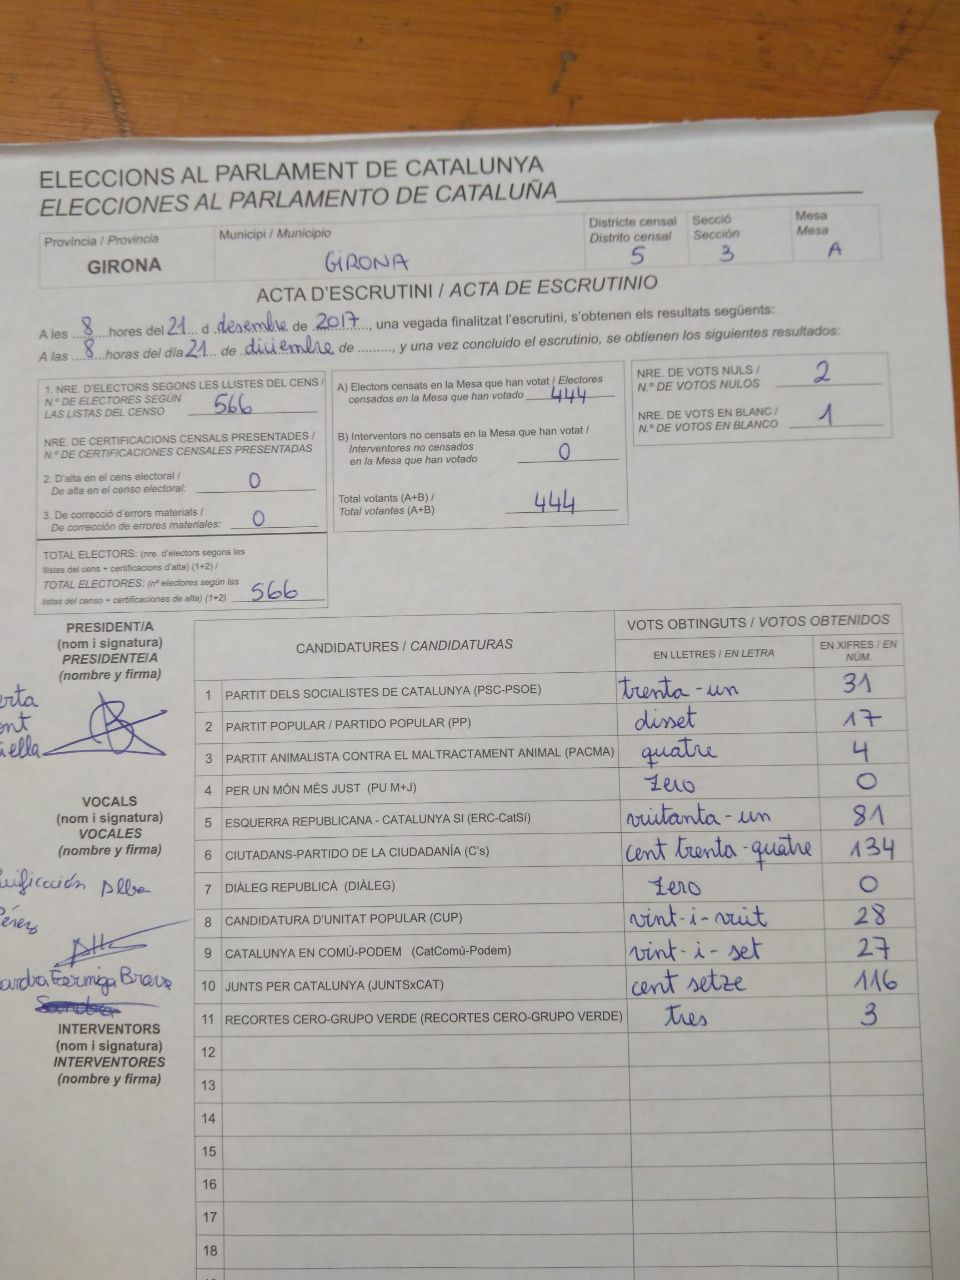 ELECCIONS AL PARLAMENT DE CATALUNYA
ELECCIONES AL PARLAMENTO DE CATALUÑA
Provincia / Provincia
GIRONA
Municipi / Municipio
GIRONA
Districte censal
Distrito censal
5
Secció
Sección
3
Mesa
Mesa
A
ACTA D'ESCRUTINI / ACTA DE ESCRUTINIO
A les 8 hores del 21 d desembre de 2017, una vegada finalitzat l'escrutini, s'obtenen els resultats següents:
A las 8 horas del día 21 de diciembre de ........., y una vez concluido el escrutinio, se obtienen los siguientes resultados:
1. NRE. D'ELECTORS SEGONS LES LLISTES DEL CENS /
N.º DE ELECTORES SEGÚN
LAS LISTAS DEL CENSO 566
NRE. DE CERTIFICACIONS CENSALS PRESENTADES /
N.º DE CERTIFICACIONES CENSALES PRESENTADAS
2. D'alta en el cens electoral /
De alta en el censo electoral: 0
3. De correcció d'errors materials /
De corrección de errores materiales: 0
TOTAL ELECTORS: (nre. d'electors segons les
llistes del cens + certificacions d'alta) (1+2) /
TOTAL ELECTORES: (nº electores según las
listas del censo + certificaciones de alta) (1+2) 566
A) Electors censats en la Mesa que han votat / Electores
censados en la Mesa que han votado 444
B) Interventors no censats en la Mesa que han votat /
Interventores no censados
en la Mesa que han votado 0
Total votants (A+B) /
Total votantes (A+B) 444
NRE. DE VOTS NULS /
N.º DE VOTOS NULOS 2
NRE. DE VOTS EN BLANC /
N.º DE VOTOS EN BLANCO 1
PRESIDENT/A
(nom i signatura)
PRESIDENTE/A
(nombre y firma)
VOCALS
(nom i signatura)
VOCALES
(nombre y firma)
Alba
Bravo
INTERVENTORS
(nom i signatura)
INTERVENTORES
(nombre y firma)
CANDIDATURES / CANDIDATURAS
VOTS OBTINGUTS / VOTOS OBTENIDOS
EN LLETRES / EN LETRA
EN XIFRES / EN
NÚM.
1 PARTIT DELS SOCIALISTES DE CATALUNYA (PSC-PSOE) trenta-un 31
2 PARTIT POPULAR / PARTIDO POPULAR (PP) disset 17
3 PARTIT ANIMALISTA CONTRA EL MALTRACTAMENT ANIMAL (PACMA) quatre 4
4 PER UN MÓN MÉS JUST (PU M+J) zero 0
5 ESQUERRA REPUBLICANA - CATALUNYA SI (ERC-CatSí) vuitanta-un 81
6 CIUTADANS-PARTIDO DE LA CIUDADANÍA (C's) cent trenta-quatre 134
7 DIÀLEG REPUBLICÀ (DIÀLEG) zero 0
8 CANDIDATURA D'UNITAT POPULAR (CUP) vint-i-vuit 28
9 CATALUNYA EN COMÚ-PODEM (CatComú-Podem) vint-i-set 27
10 JUNTS PER CATALUNYA (JUNTSxCAT) cent setze 116
11 RECORTES CERO-GRUPO VERDE (RECORTES CERO-GRUPO VERDE) tres 3
12
13
14
15
16
17
18